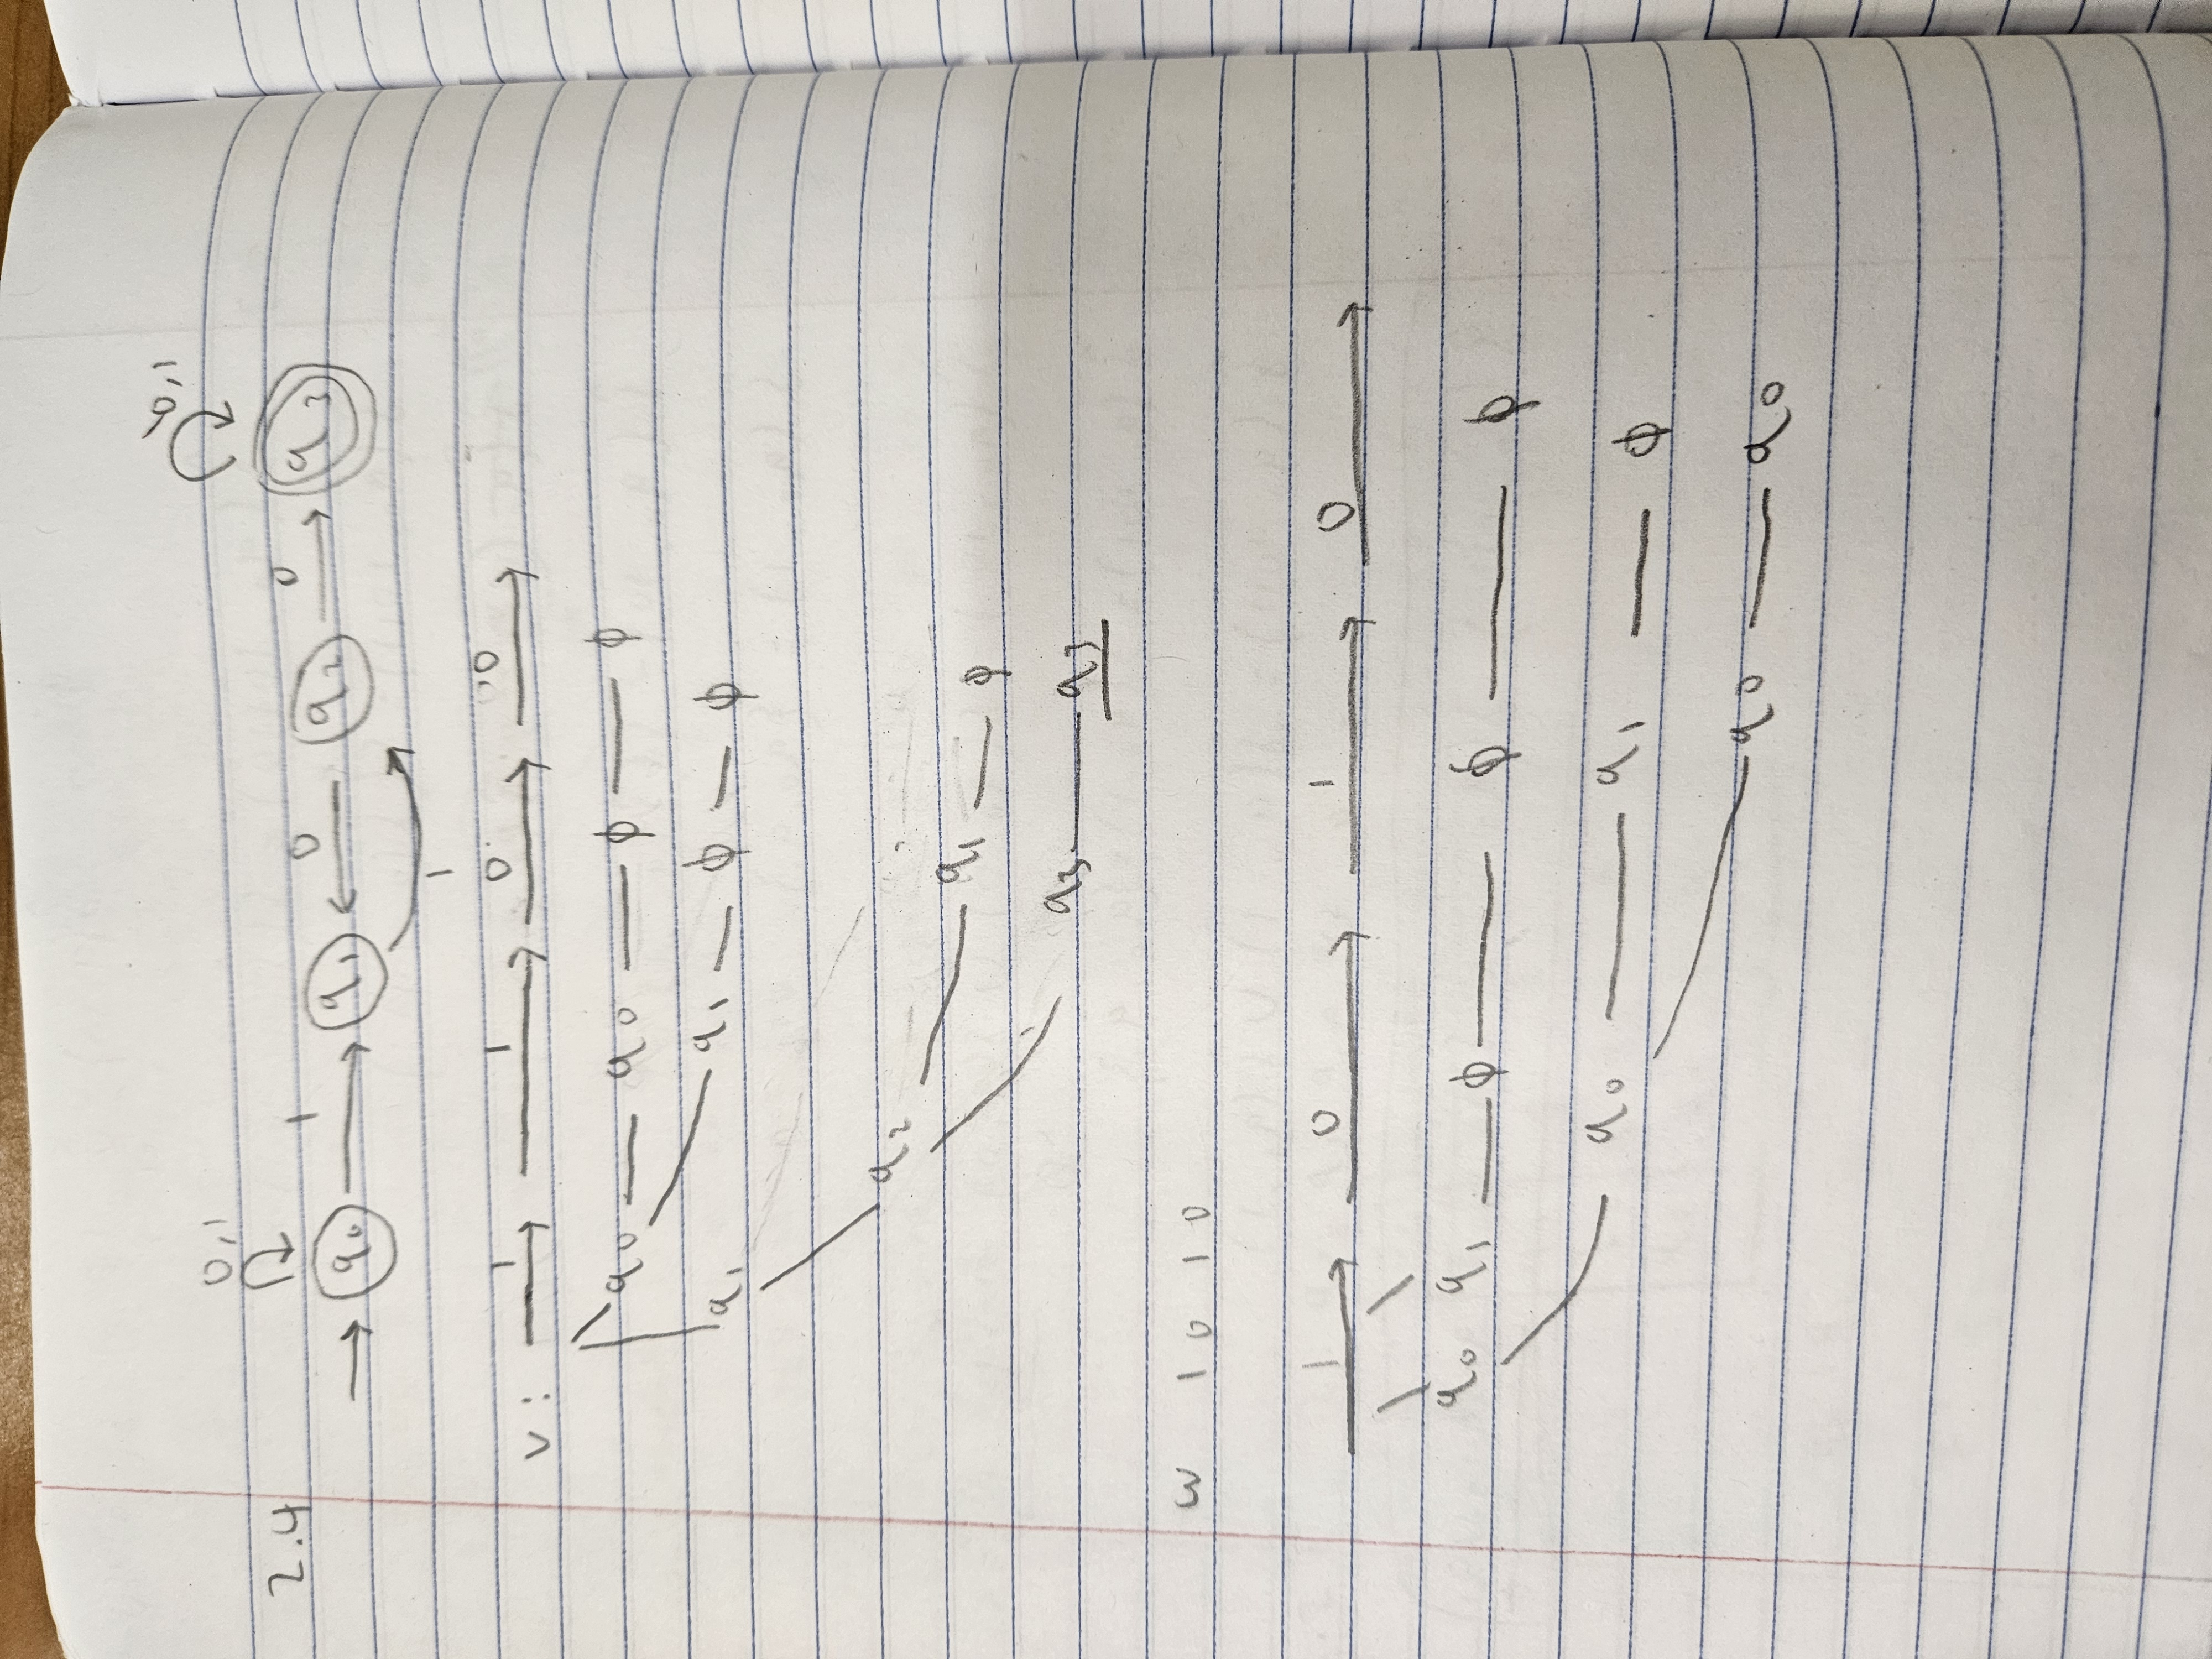 0,1 0,1
2.4 q0 1 q1 0 q2 0 q3
1
v: 1 1 0 0
q0 q0 ϕ ϕ
q1 ϕ ϕ
q1
q2
q1 ϕ
q3 q3
w 1 0 1 0
1 0 1 0
q0 q1 ϕ ϕ ϕ
q0 q1 ϕ
q0 q0